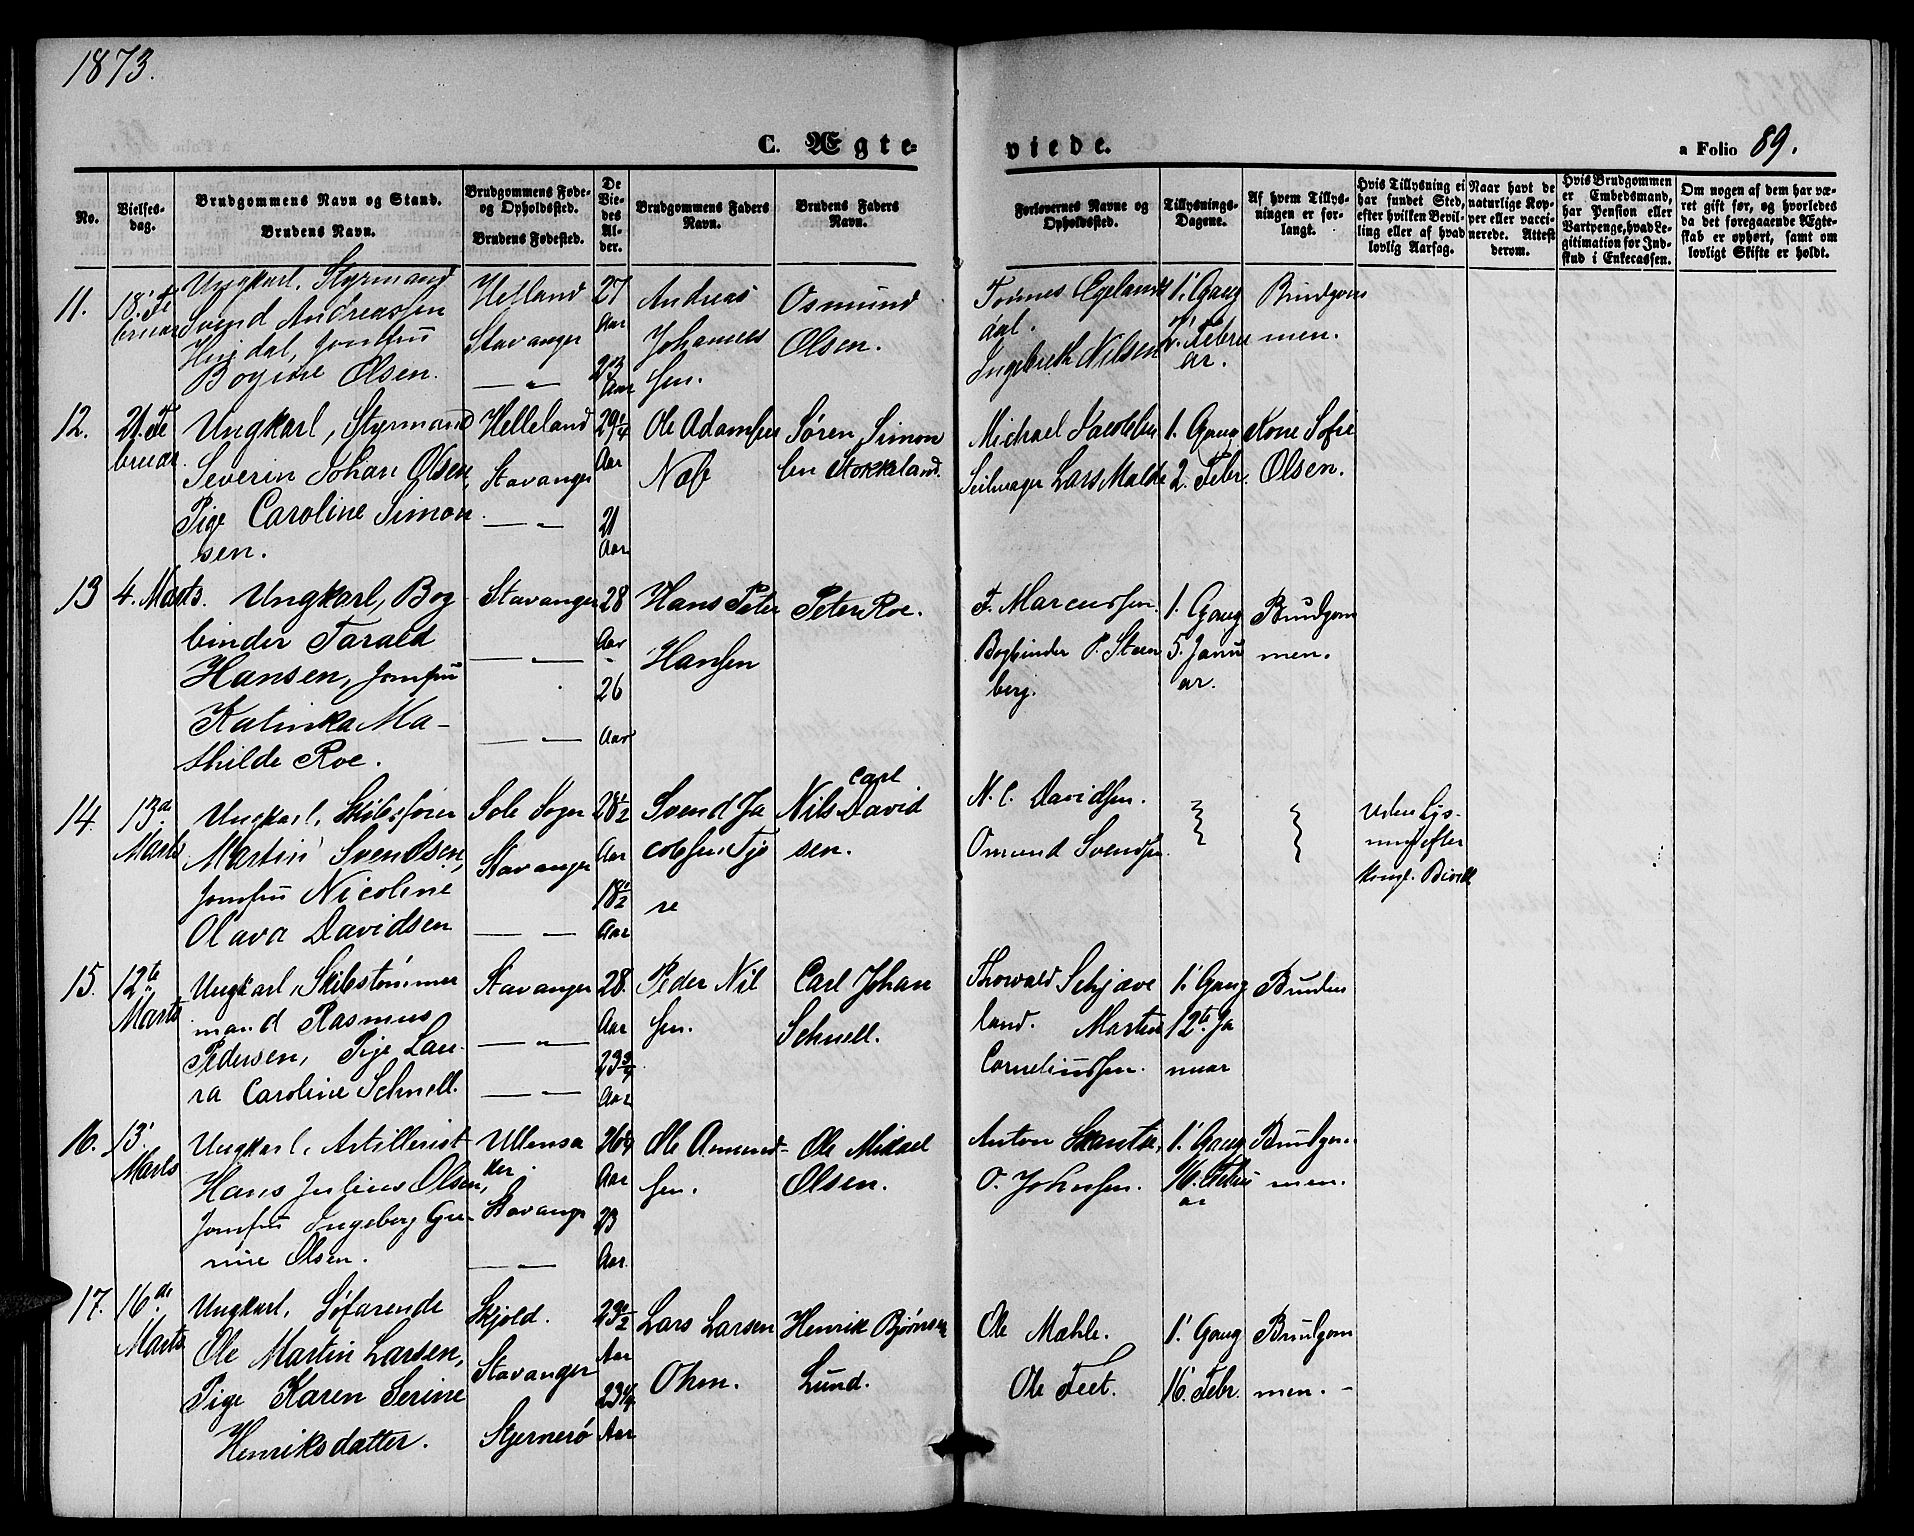 1873.
C. Ægteviede.
a Folio 89.
No.
Vielses-dag.
Brudgommens Navn og Stand.
Brudens Navn.
Brudgommens Føde- og Opholdssted.
Brudens Fødested.
De Viedes Alder.
Brudgommens Faders Navn.
Brudens Faders Navn.
Forlovernes Navne og Opholdssted.
Tillysnings-Dagene.
Af hvem Tillysningen er forlangt.
Hvis Tillysning ei har fundet Sted, efter hvilken Bevilling eller af hvad lovlig Aarsag.
Naar havt de naturlige Kopper eller vaccinerede. Attest derom.
Hvis Brudgommen er Embedsmand, har Pension eller Vartpenge, hvad Legitimation for Indskud i Enkecassen.
Om nogen af dem har været gift før, og hvorledes da det foregaaende Ægteskab er ophørt, samt om lovligt Skifte er holdt.
11.
18' Februar
Ungkarl, Styrmand
Svend Andreassen
Jomfru
Olsen.
Helland
Stavanger
— " —
27 Aar
23 Aar
Andreas
Johannessen.
Osmund
Olsen.
Tønnes Egelandsdal.
Ingebreth Nilsen
1' Gang
2' Februar.
Brudgommen.
12.
21. Februar
Ungkarl, Styrmand
Severin Johan Olsen,
Pige Caroline Simon
sen.
Helleland
Stavanger
— " —
29 1/4 Aar
21 Aar
Ole Adamsen
Næs
Søren Simon
sen Stokkeland.
Michael Jacobsen
Seilmager Lars Malde
1. Gang
2. Febr.
Kone Sofie
Olsen.
13
4. Marts.
Ungkarl, Bog-
binder Tarald
Hansen, Jomfru
Katinka Ma-
thilde Roe.
Stavanger
— " —
— " —
28 Aar
26 Aar
Hans Peter
Hansen
Peter Roe.
F. Marcussen.
Bogbinder P. Steen
berg.
1. Gang
5. Janu
ar.
Brudgom
men.
14.
13de Marts
Ungkarl, Skibsfører
Martin Svendsen,
Jomfru Nicoline
Olava Davidsen
Sole Sogn
Stavanger
— " —
28 1/2 Aar
18 1/2 Aar
Svend Ja
cobsen Tje
re
Nils Carl David
sen.
N. C. Davidsen.
Omund Svendsen.
Uden Lys-
ning efter
kongl. Bevill
15.
12te Marts
Ungkarl, Skibstømmer
mand Rasmus
Pedersen, Pige Lau-
ra Caroline Schnell.
Stavanger
— " —
— " —
28. Aar
23 3/4 Aar
Peder Nil
sen.
Carl Johan
Schnell.
Thorvald Schjæve
land. Martin
Corneliussen.
1' Gang
12te Ja
nuar
Bruden
16.
13' Marts
Ungkarl, Artillerist
Hans Julius Olsen,
Jomfru Ingeborg Gu-
rine Olsen.
Ullensa
ker.
Stavanger
— " —
26 Aar
23 Aar
Ole Amund-
sen.
Ole Mikael
Olsen.
Anton
O. Johnsen.
1' Gang
16. Febru
ar
Brudgom
men.
17.
16de Marts
Ungkarl, Søfarende
Ole Martin Larsen,
Pige Karen Serine
Henriksdatter.
Skjold.
Stavanger
Stjernerø
23 1/2 Aar
23 1/4 Aar
Lars Larsen
Ohm.
Henrik Bjørnsen
Lund.
Ole Mæhle.
Ole Feet.
1' Gang
16' Febr.
Brudgom
men. -